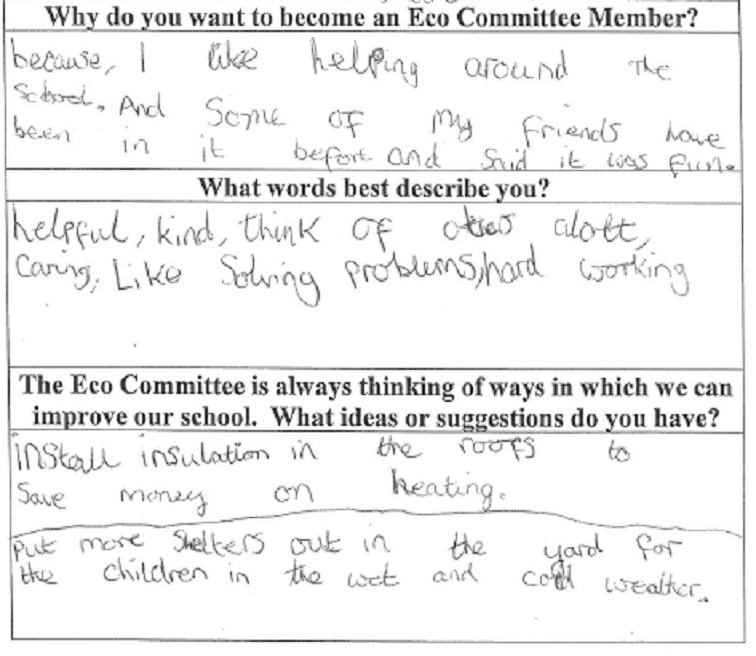 Why do you want to become an Eco Committee Member?
because, I like helping around The
School. And Some of my friends have
been in it before and Said it was fun.
What words best describe you?
helpful, kind, think of others alott,
Caring, Like Solving problems, hard working
The Eco Committee is always thinking of ways in which we can
improve our school. What ideas or suggestions do you have?
install insulation in the roofs to
Save money on heating.
Put more Shelters out in the yard for
the children in the wet and cold weather.